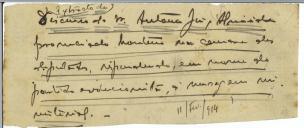 (Extracto do)
Discurso do Sr. António José d'Almeida
pronunciado hontem na camara dos
deputados, respondendo, em nome do
partido evolucionista, á mensagem mi-
nisterial. –
11 / Fev. / 914